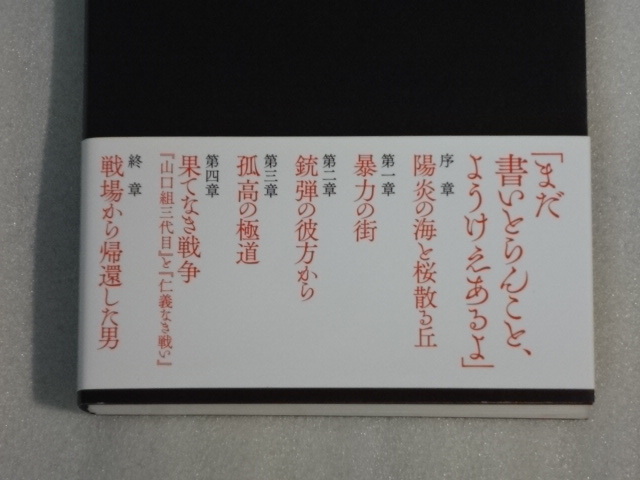 「まだ
書いとらんこと、
ようけえあるよ」
序 章
陽炎の海と桜散る丘
第一章
暴力の街
第二章
銃弾の彼方から
第三章
孤高の極道
第四章
果てなき戦争
『山口組三代目』と『仁義なき戦い』
終 章
戦場から帰還した男